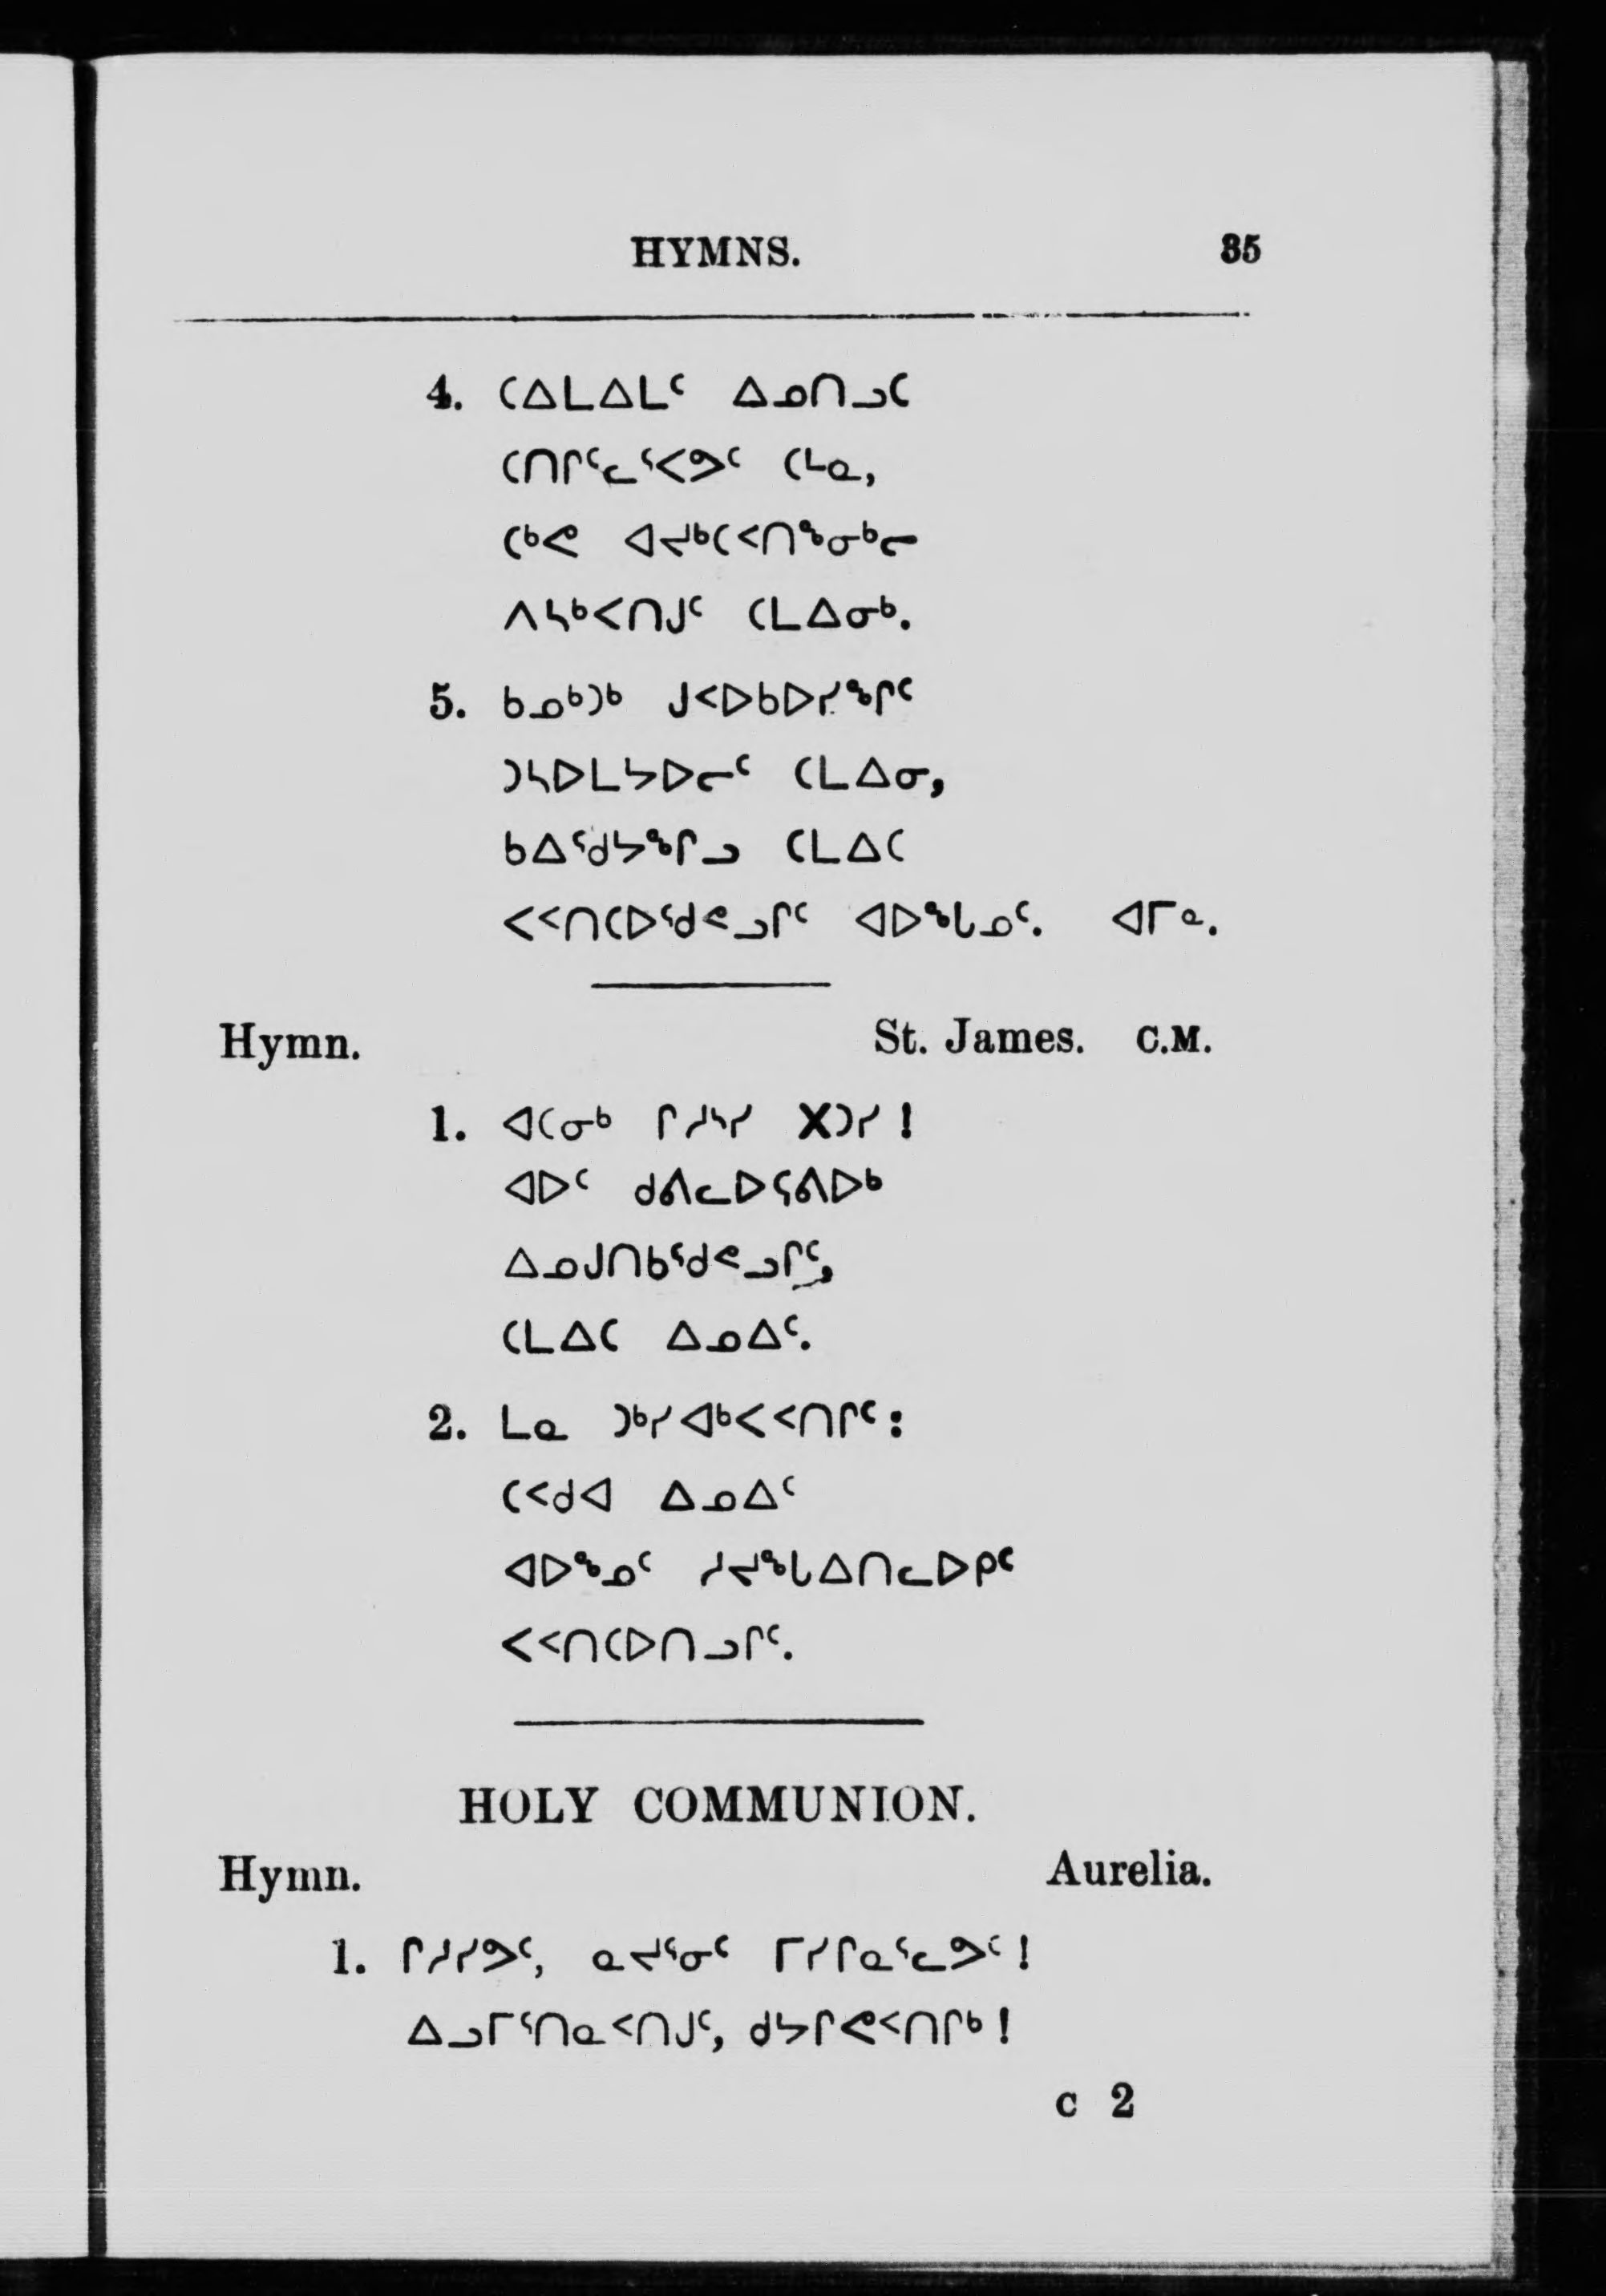 HYMNS. 35
4. ᑕᐃᒪᐃᒪᑦ ᐃᓄᑎᓗᑕ
ᑕᑎᒋᑦᓚᕐᐸᕗᑦ ᑕᒻᓇ,
ᑕᒃᕙ ᐊᔪᒃᑕᑉᑎᖕᓂᒃᓕ
ᐱᓴᒃᐸᑎᒍᑦ ᑕᒪᐃᓂᒃ.
5. ᑲᓄᒃᑐᒃ ᒍᑉᐅᑲᐅᓯᖕᒋᑦ
ᑐᓴᐅᒪᔭᐅᓕᑦ ᑕᒪᐃᓂ,
ᑲᐃᕐᑯᔭᖕᒋᓗ ᑕᒪᐃᑕ
ᐸᑉᑎᑕᐅᕐᑯᕝᓗᒋᑦ ᐊᐅᖕᒐᓄᑦ. ᐊᒥᓐ.
Hymn. St. James. C.M.
1. ᐊᑕᓂᒃ ᒋᓱᔅᓯ Xᑐᓯ!
ᐊᐅᑦ ᑯᕕᓚᐅᕋᕕᐅᒃ
ᐃᓄᒍᑎᑲᕐᑯᕝᓗᒋᑦ,
ᑕᒪᐃᑕ ᐃᓄᐃᑦ.
2. ᒪᓇ ᑐᒃᓯᐊᒃᐸᑉᑎᒋᑦ:
ᑕᑉᑯᐊ ᐃᓄᐃᑦ
ᐊᐅᖕᓄᑦ ᓱᔪᖕᒐᐃᑎᓚᐅᑭᑦ
ᐸᑉᑎᑕᐅᑎᓗᒋᑦ.
HOLY COMMUNION.
Hymn. Aurelia.
1. ᒋᓱᓯᕗᑦ, ᓇᔪᕐᓂᑦ ᒥᓯᒋᓇᕐᓚᕗᑦ!
ᐃᓗᒥᕐᑎᓇᑉᑎᒍᑦ, ᑯᔭᒋᕙᑉᑎᒋᒃ!
C 2